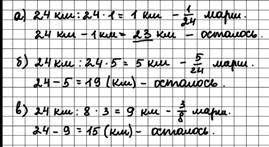 а) 24 км : 24 · 1 = 1 км - 1/24 марш.
24 км - 1 км = 23 км - осталось.
б) 24 км : 24 · 5 = 5 км - 5/24 марш.
24 - 5 = 19 (км) - осталось.
в) 24 км : 8 · 3 = 9 км - 3/8 марш.
24 - 9 = 15 (км) - осталось.